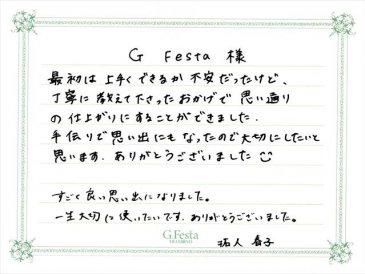 G Festa 様
最初は上手くできるか不安だったけど、
丁寧に教えて下さったおかげで思い通り
の仕上がりにすることができました。
手作りで思い出にもなったので大切にしたいと
思います。ありがとうございました
すごく良い思い出になりました。
一生大切に使いたいです。ありがとうございました。
G.Festa
拓人 春子